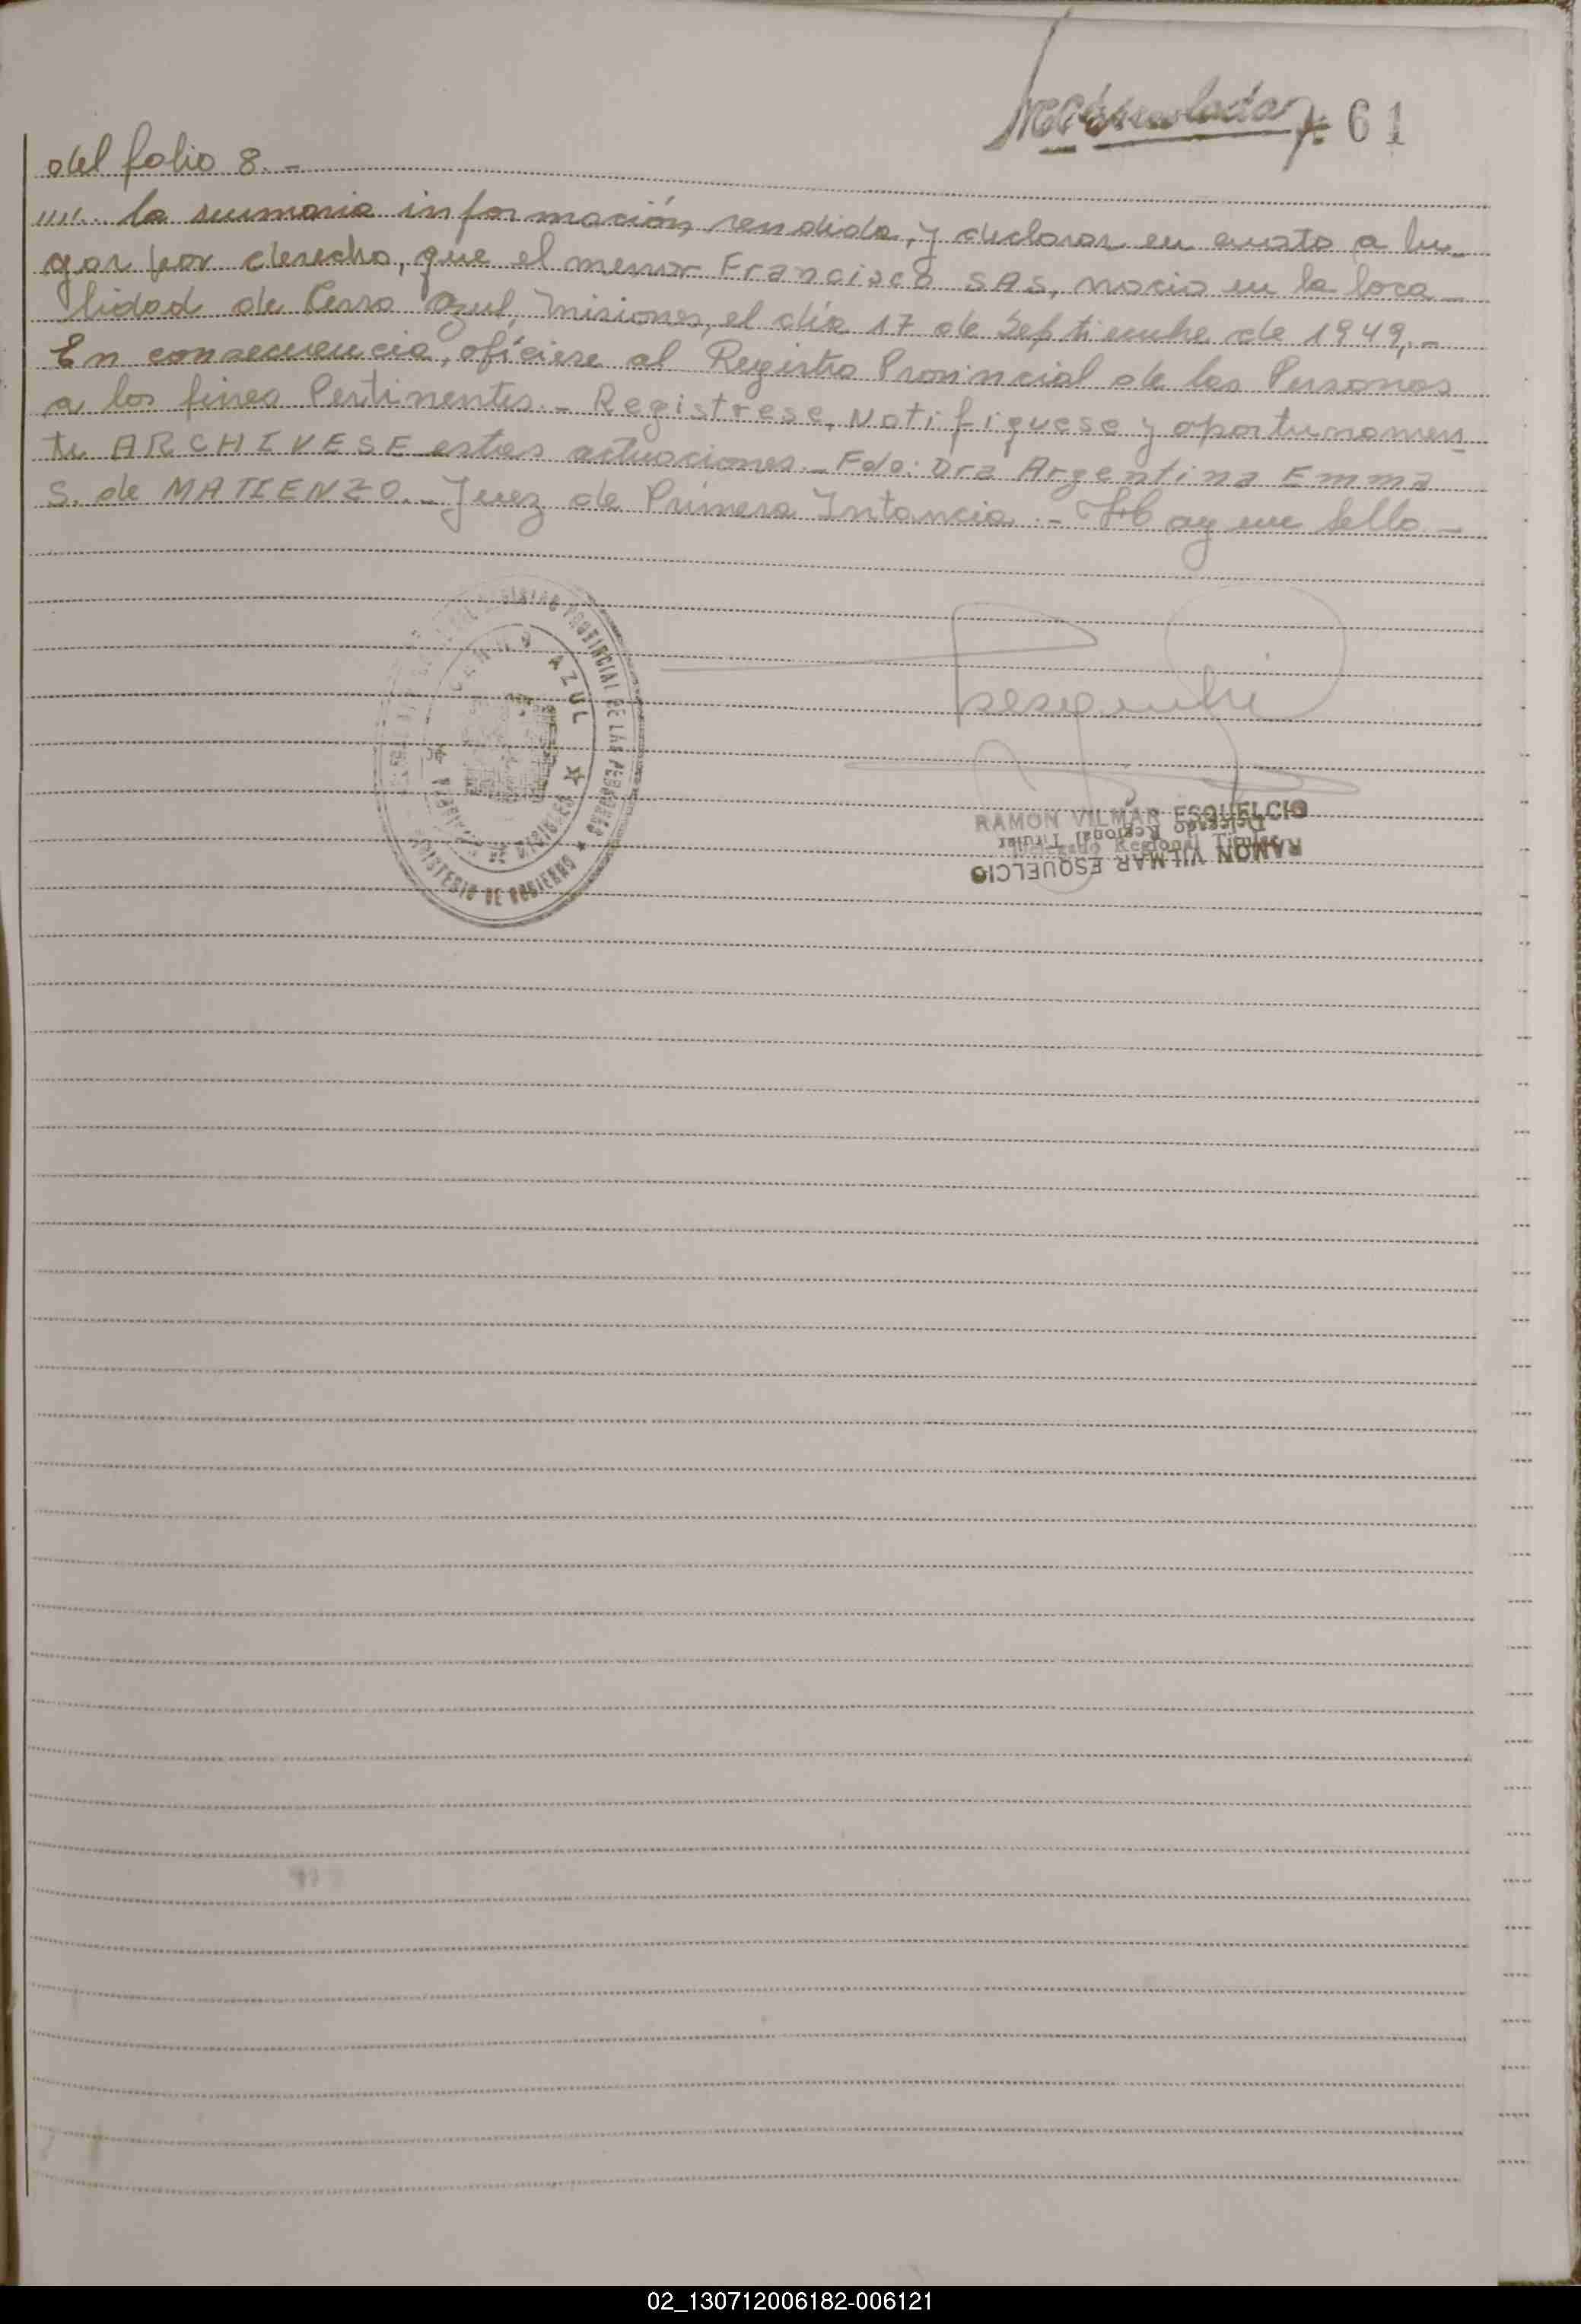 61
del folio 8.-
"".. la sumaria información rendida, y declarar en cuato a lu-
gar por derecho, que el menor Francisco SAS, nacio en la loca-
lidad de Cerro Azul, Misiones, el día 17 de Septiembre de 1949,.-
En consecuencia, ofíciese al Registro Provincial de las Personas
a los fines Pertinentes.- Registrese, Notifiquese y oportunamen-
te ARCHIVESE estas actuaciones.- Fdo: Dra Argentina Emma
S. de MATIENZO.- Juez de Primera Instancia.- Hay un Sello.-
REGISTRO PROVINCIAL DE LAS PERSONAS ★ MINISTERIO DE GOBIERNO
CERRO AZUL ★ PROVINCIA DE MISIONES
RAMON VILMAR ESQUELCIO
Delegado Regional Titular
Delegado Regional Titular
RAMON VILMAR ESQUELCIO
02_130712006182-006121